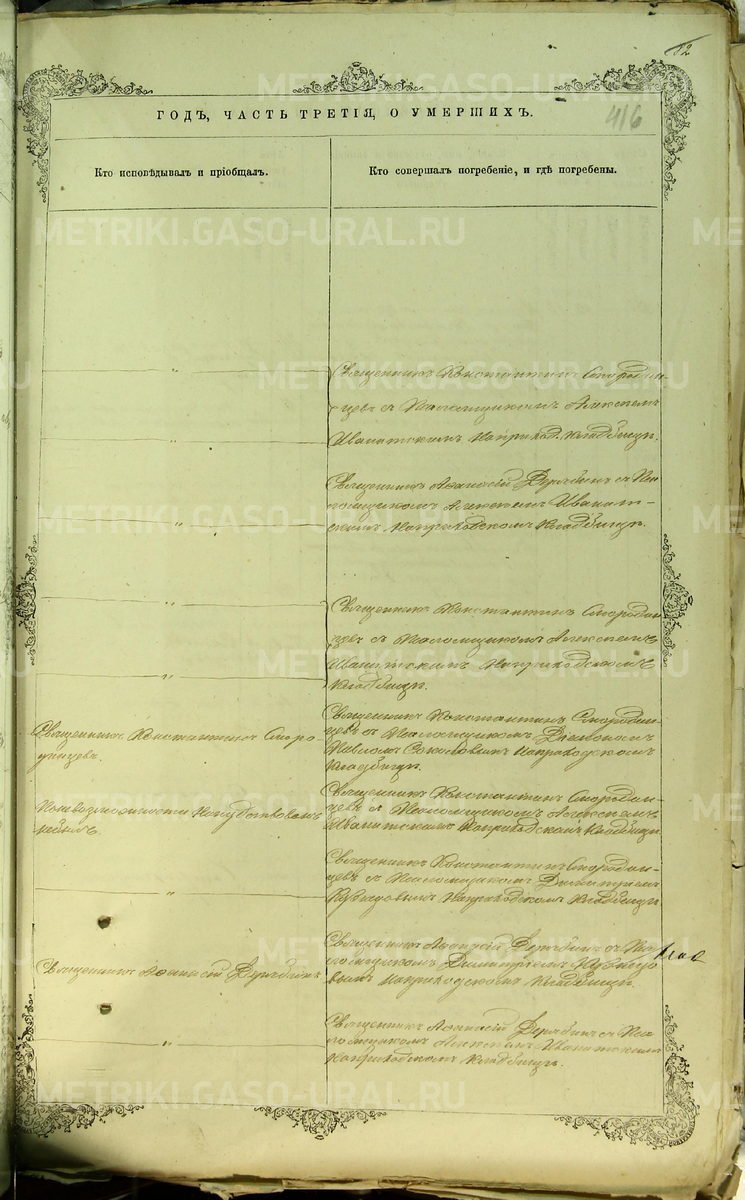 82
416
ГОДЪ, ЧАСТЬ ТРЕТІЯ, О УМЕРШИХЪ.
Кто исповѣдывалъ и пріобщалъ.
Кто совершалъ погребеніе, и гдѣ погребены.
Священникъ Константинъ Смородин-
цевъ съ Псаломщикомъ Алексѣемъ
Иваницкимъ на приход. кладбищѣ.
Священникъ Аѳанасій Дерябинъ съ Пса-
ломщикомъ Алексѣемъ Иваниц-
кимъ на приходскомъ кладбищѣ.
Священникъ Константинъ Смородин-
цевъ съ Псаломщикомъ Алексѣемъ
Иваницкимъ на приходскомъ
кладбищѣ.
Священникъ Константинъ Сморо-
динцевъ.
Священникъ Константинъ Смородин-
цевъ съ Псаломщикомъ Діакономъ
Соколовымъ на приходскомъ
кладбищѣ.
Священникъ Константинъ Смородин-
цевъ съ Псаломщикомъ Алексѣемъ
Иваницкимъ на приходскомъ кладбищѣ.
Священникъ Константинъ Смородин-
цевъ съ Псаломщикомъ Димитріемъ
на приходскомъ кладбищѣ.
Священникъ Аѳанасій Дерябинъ
Священникъ Аѳанасій Дерябинъ съ Пса-
ломщикомъ Димитріемъ
на приходскомъ кладбищѣ.
Священникъ Аѳанасій Дерябинъ съ Пса-
ломщикомъ Алексѣемъ Иваницкимъ
на приходскомъ кладбищѣ.
METRIKI.GASO-URAL.RU